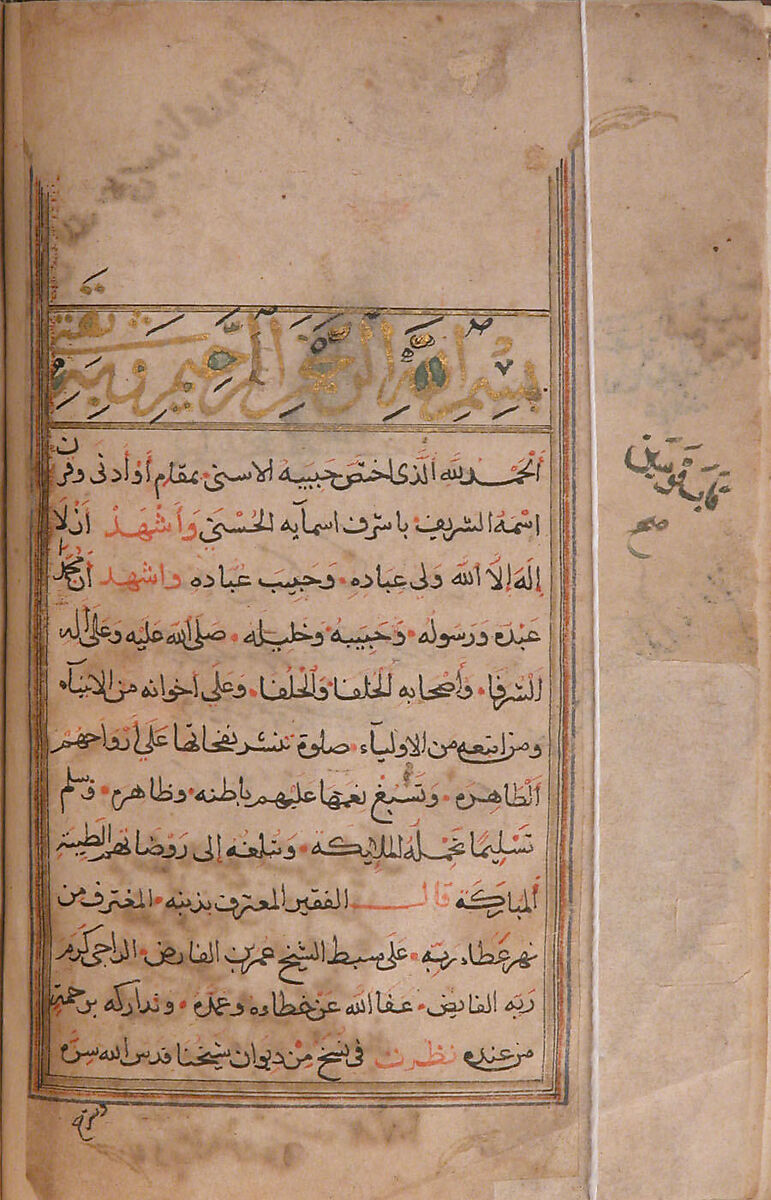 بسم الله الرحمن الرحيم وبه ثقتي
الحمد لله الذي اختص حبيبه الاسنى بمقام أو أدنى وقرن
اسمه الشريف باشرف اسمايه الحسنى وأشهد أن لا
إله إلا الله ولى عباده وحبيب عباده واشهد أن محمدا
عبده ورسوله وحبيبه وخليله صلى الله عليه وعلى آله
الشرفا وأصحابه الخلفا والحلفا وعلى أخوانه من الانبياء
ومن اتبعه من الاولياء صلوة تنشر نفحاتها على أرواحهم
الطاهره وتسبغ نعمتها عليهم باطنه وظاهره وسلم
تسليما تحمله الملايكة وتبلغه إلى روضاتهم الطيبة
المباركة قال الفقير المعترف بذنبه المغترف من
نهر عطاء ربه على سبط الشيخ عمر بن الفارض الراجى كرم
ربه الفايض عفا الله عن خطاوه وعمده وتداركه برحمة
من عنده نظرت فى نسخ من ديوان شيخنا قدس الله سره
قاب قوسين
صح